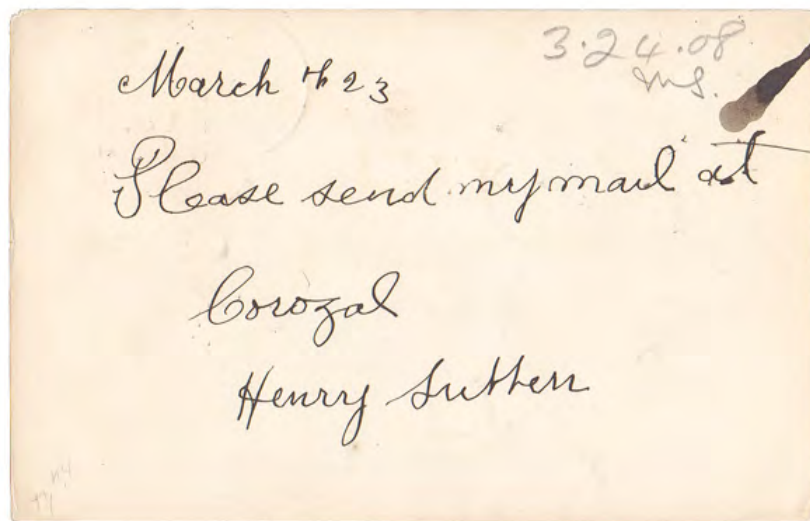 3.24.08
March th 23
Please send my mail at
Corozal
Henry Suthern